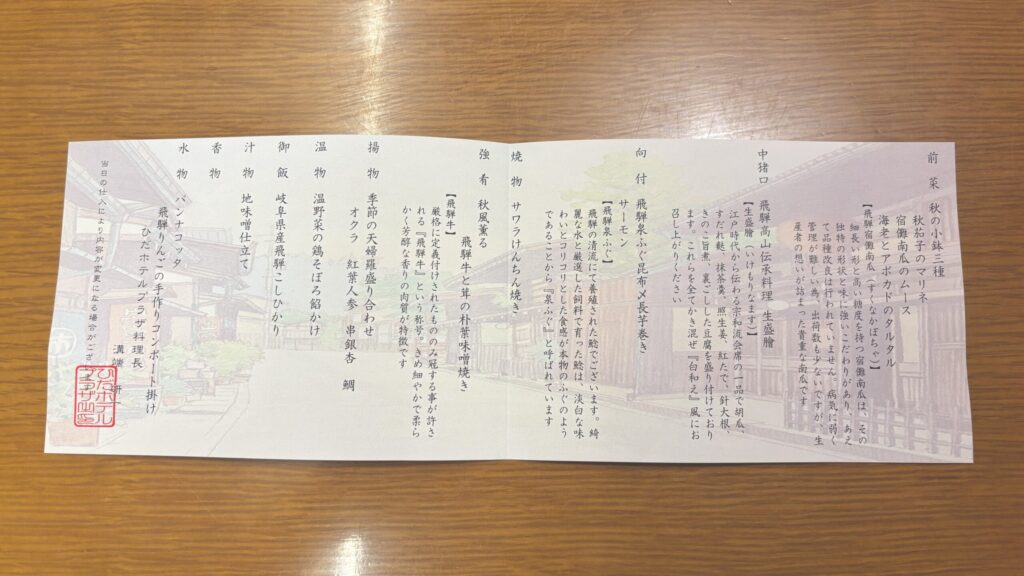 前菜 秋の小鉢三種
秋茄子のマリネ
宿儺南瓜のムース
海老とアボカドのタルタル
【飛騨宿儺南瓜（すくなかぼちゃ）】
細長い形と高い糖度を持つ宿儺南瓜は、その
独特の形状と味に強いこだわりがあり、あえ
て品種改良は行われていません。病気に弱く
管理が難しい為、出荷数も少ないですが、生
産者の想いが詰まった貴重な南瓜です
中猪口 飛騨高山伝承料理 生盛膾
【生盛膾（いけもりなます）】
江戸時代から伝わる宗和流会席の一品で胡瓜、
すだれ麩、抹茶羹、照生姜、紅たで、針大根、
きのこ旨煮、裏ごしした豆腐を盛り付けており
ます。これらを全てかき混ぜ『白和え』風にお
召し上がりください
向付 飛騨泉ふぐ昆布〆長芋巻き
サーモン
【飛騨泉ふぐ】
飛騨の清流にて養殖された鯰でございます。綺
麗な水と厳選した飼料で育った鯰は、淡白な味
わいとコリコリとした食感が本物のふぐのよう
であることから『泉ふぐ』と呼ばれています
焼物 サワラけんちん焼き
強肴 秋風薫る
飛騨牛と茸の朴葉味噌焼き
【飛騨牛】
厳格に定義付けされたもののみ冠する事が許さ
れる『飛騨牛』という称号。きめ細やかで柔ら
かく芳醇な香りの肉質が特徴です
揚物 季節の天婦羅盛り合わせ
オクラ 紅葉人参 串銀杏 鯛
温物 温野菜の鶏そぼろ餡かけ
御飯 岐阜県産飛騨こしひかり
汁物 地味噌仕立て
香物
水物 パンナコッタ
飛騨りんごの手作りコンポート掛け
ひだホテルプラザ料理長
溝端 研
当日の仕入により内容が変更になる場合がござ